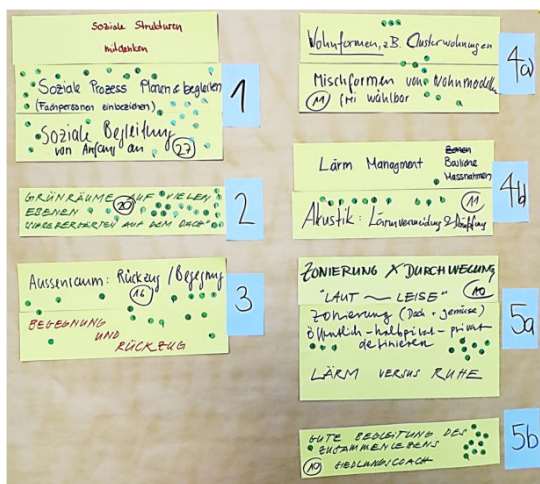 Soziale Strukturen
mitdenken
Soziale Prozess Planen & begleiten
(Fachpersonen einbeziehen)
Soziale Begleitung
von Anfang an 27
1
GRÜNRÄUME AUF VIELEN
EBENEN 20
AUF DEM DACH
2
Aussenraum: Rückzug / Begegnung
16
BEGEGNUNG
UND
RÜCKZUG
3
Wohnformen, z.B. Clusterwohnungen
Mischformen von Wohnmodellen
11 wählbar
4a)
Lärm Managment Zonen
Bauliche
Massnahmen
11
Akustik: Lärmvermeidung & Dämpfung
4b
ZONIERUNG DURCHWEGUNG
"LAUT ~ LEISE" 10
Zonierung (Dach + gemüse)
öffentlich - halbprivat - privat
definieren
LÄRM VERSUS RUHE
5a
GUTE BEGLEITUNG DES
ZUSAMMENLEBENS
10 SIEDLUNGSCOACH
5b